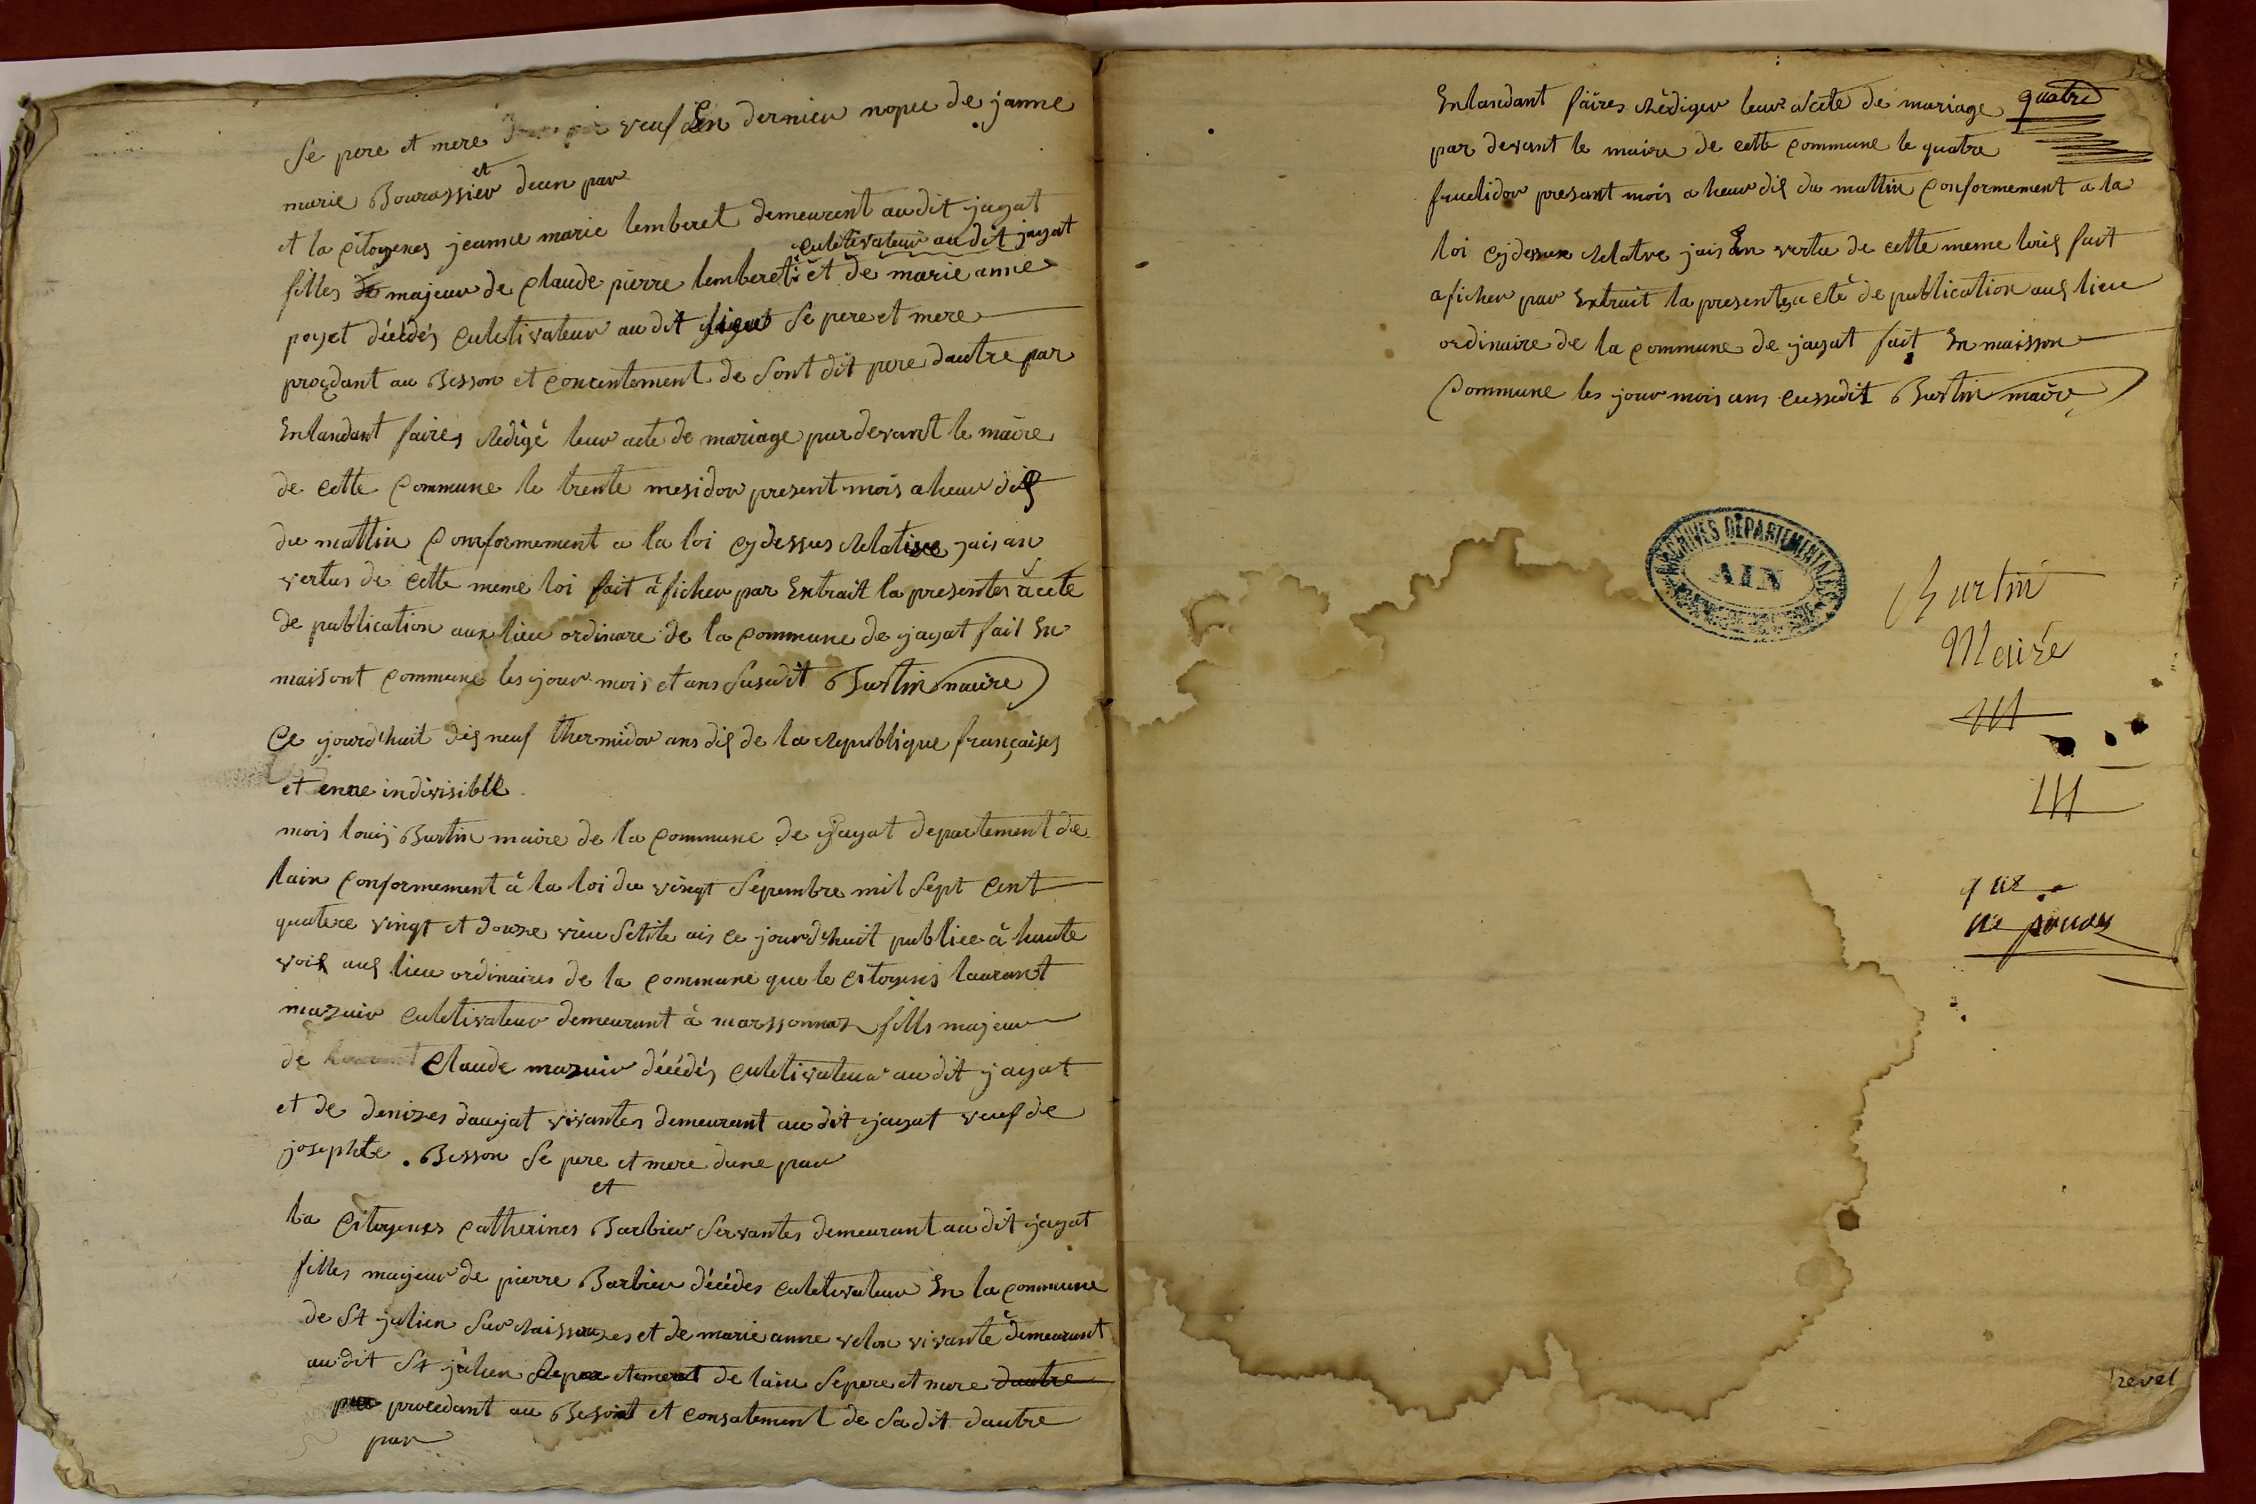 Se pere et mere veuf En dernier nopce de janne
marie Bourassier deun par
et
et la Citoyenes jeanne marie lemberet demeurent audit jayat
culetivateur au dit jayat
filles majeur de Claude pierre lemberet et de marie anne
poyet décédés Culetivateur au dit Se pere et mere
proçdant au Besson et Concentement de Sont dit pere dautre par
Entandant faires Redigé leur acte de mariage pardevant le maire
de Cette Commune le trente mesidor present mois a heur dix
du mattin Conformement a la loi Cy dessus Relative jais an
vertus de Cette meme loi fait àficher par Extrait la presentes àcete
de publication aux lieu ordinare de la Commune de jayat fait En
maisont Commune les jour mois et ans Susudit Burtin maire
Ce jourd'huit dix neuf thermidor ans dix de la Republique françaises
et enne indivisiblle
mois louis Burtin maire de la Commune de jayat departement de
lain Conformement à la loi du vingt Sepembre mil Sept Cent
quatere vingt et douze vieu Setile ais Ce jourd'huit publiee à haute
voix aux lieu ordinaires de la Commune que le Citoyens laurant
mazuir Culetivateur demeurant à marssonnaz fills majeur
de Claude mazuir décédés Culetivateur au dit jayat
et de denizes daujat vivantes demeurant au dit jayat veuf de
josephte Besson Se pere et mere dune par
et
la Citoyenes Catherines Barbier Servantes demeurant au dit jayat
filles majeur de pierre Barbier décédes Culetivateur En la Commune
de St julien Sur Raissouzes et de marie anne velon vivante demeurant
au dit St julien Departement de lain Se pere et mere dautre
par procedant au Besoint et Consatement de Sadit dautre
par
Entandant faires Rédiger leur Acete de mariage quatre
par devant le maire de Cette Commune le quatre
fruetidor presant mois a heur dix du mattin Conformement a la
loi Cy dessux Relatve jais En vertu de Cette meme loix fait
aficher par Extrait la presentes acetè de publication aux lieu
ordinaire de la Commune de jayat fait En maisson
Commune les jour mois ans Cussudit Burtin maire
ARCHIVES DÉPARTEMENTALES
AIN
Burtin
Maire
que
revel